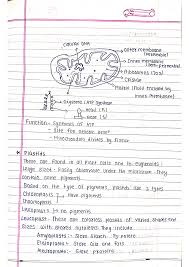 Circular DNA
Outer membrane
(permeable)
Inner membrane
(semi-permeable)
Ribosomes (70s)
Cristae
Matrix (fluid covered by
Inner Membrane)
Oxysome (ATP synthase)
head (F1)
Function - Synthesis of ATP
- Site for aerobic
- Mitochondria divides by fission
Plastids
These are found in all plant cells and in euglenoids!
Large sized: Easily observable under the microscope. They
contain some pigments.
Based on the type of pigments, plastids are 3 types
Chloroplasts
Chromoplasts
have pigments
Leucoplasts - no pigments
Leucoplast: These are colorless plastids of varied shapes and
sizes with stored nutrients. They include
Amyloplasts: Store starch
Elaioplasts: Store oils and fats
Aleuroplasts: Store proteins